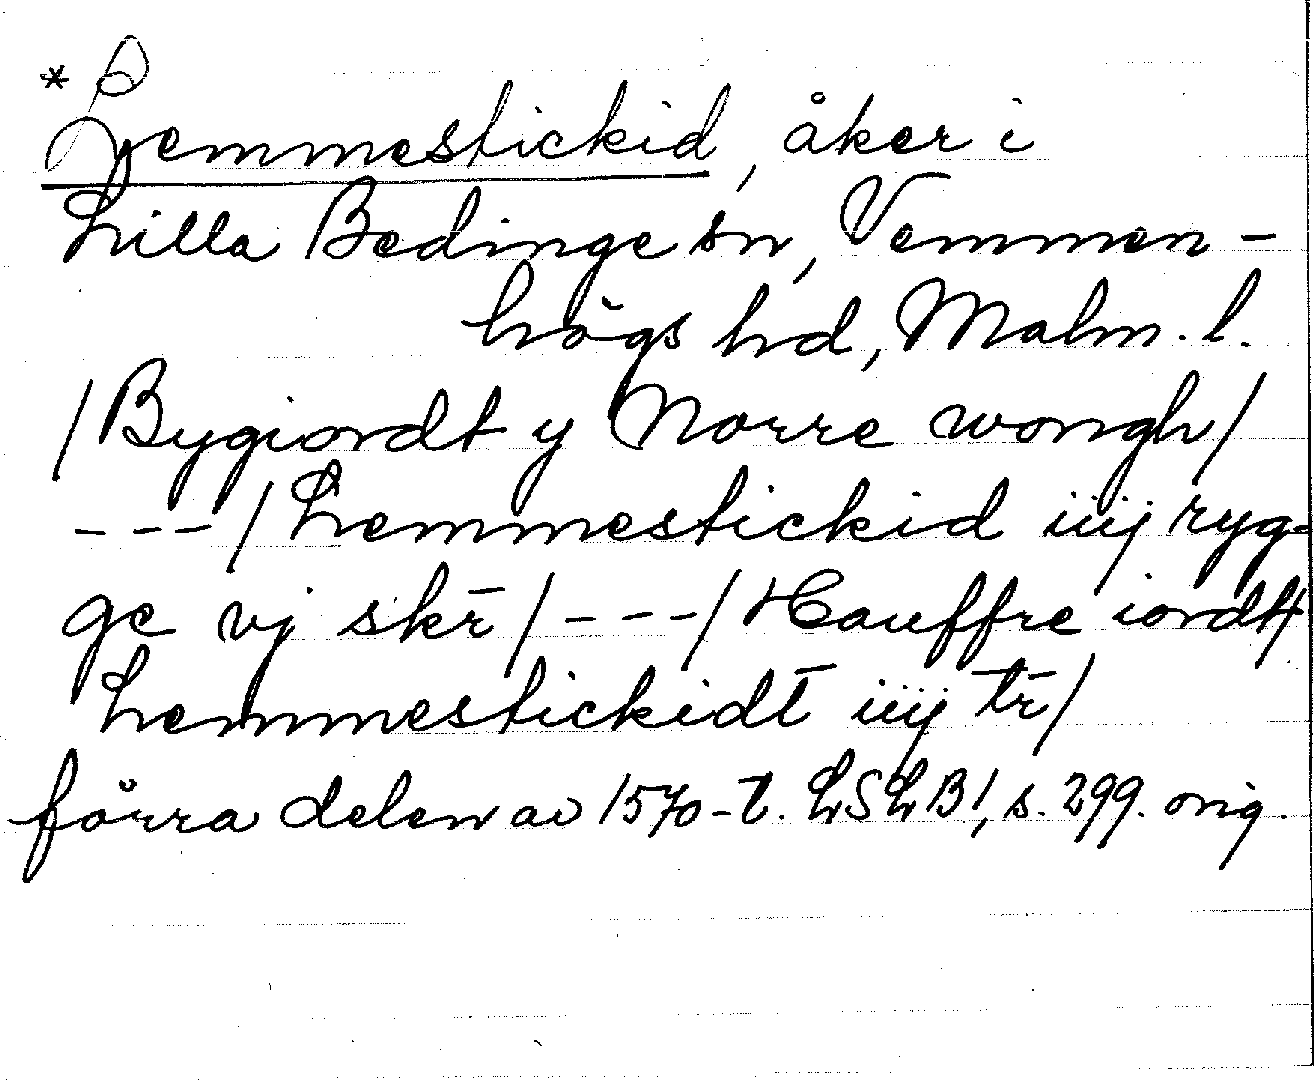 * Lemmestickid, åker i
Lilla Bedinge sn, Vemmen-
högs hd, Malm. l.
/Bygiordt y Norre wongh/
---/Lemmestickid iiij ryg-
ge vj skr̄/---/Hauffre iordt
Lemmestickidt̄ iiij tr̄/
förra delen av 1570-t. LSLB1, s. 299. orig.